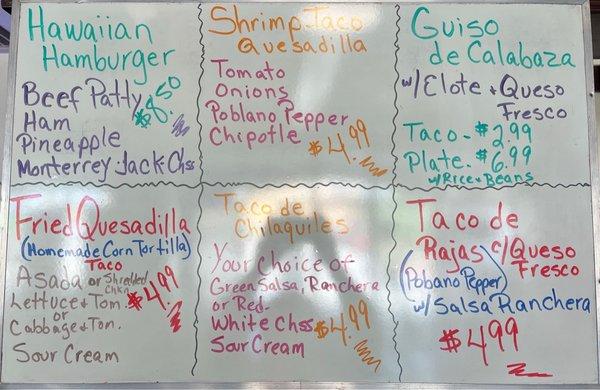 Hawaiian
Hamburger
Beef Patty
$8.50
Ham
Pineapple
Monterrey Jack Chss
Shrimp Taco
Quesadilla
Tomato
Onions
Poblano Pepper
Chipotle
$4.99
Guiso
de Calabaza
w/Elote + Queso
Fresco
Taco - $2.99
Plate - $6.99
w/Rice + Beans
Fried Quesadilla
(Homemade Corn Tortilla)
Taco
Asada or Shredded
Chkn
Lettuce + Tom.
or
Cabbage + Tom.
Sour Cream
$4.99
Taco de
Chilaquiles
Your Choice of
Green Salsa, Ranchera
or Red.
White Chss
Sour Cream
$4.99
Taco de
Rajas c/Queso
Fresco
(Pobano Pepper)
w/Salsa Ranchera
$4.99